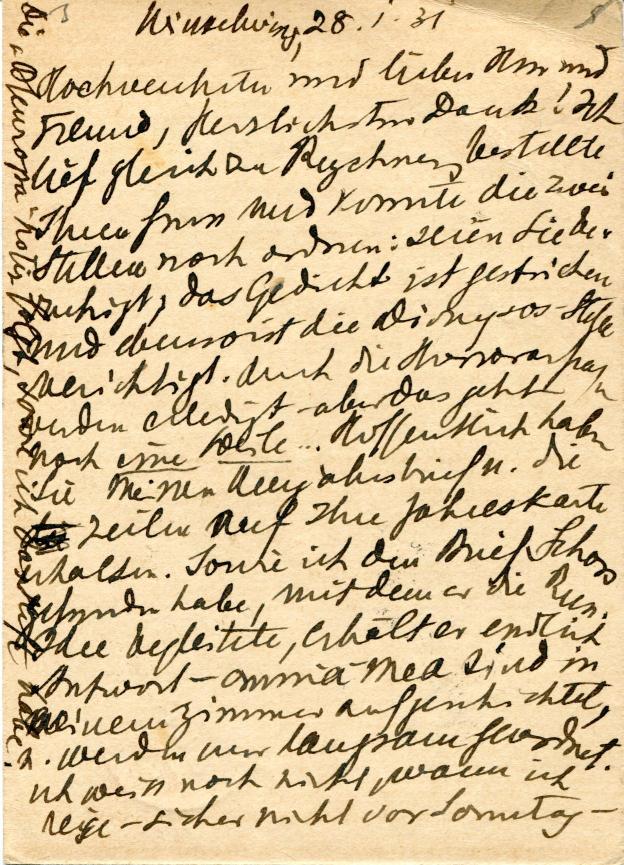 28. I. 31
Hochverehrter und lieber Herr und
Freund, Herzlichsten Dank! Ich
lief gleich zu Rychner, bestellte
Ihren Gruss und konnte die zwei
Stellen noch ordnen: seien Sie be-
ruhigt; das Gedicht ist gestrichen
und ebenso ist die Dionysos-Stelle
berichtigt. Auch die
werden erledigt - aber das geht
noch eine Weile... Hoffentlich haben
Sie meinen Neujahrsbrief u. die
Zeilen auf Ihre Jahreskarte
erhalten. Sowie ich den Brief
gefunden habe, mit dem er die
Idee begleitete, erhält er endlich
Antwort - omnia mea sind in
meinem Zimmer aufgeschichtet,
u. werden nur langsam geordnet.
Ich weiss noch nicht, wann ich
reise - sicher nicht vor Sonntag -
Die "Neuropa"-Notiz folgt, sowie ich habe.